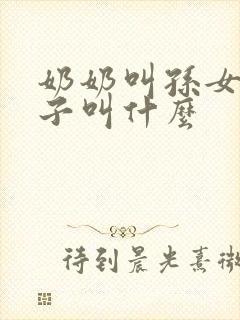 奶奶叫孫女
子叫什麼
待到晨光熹微